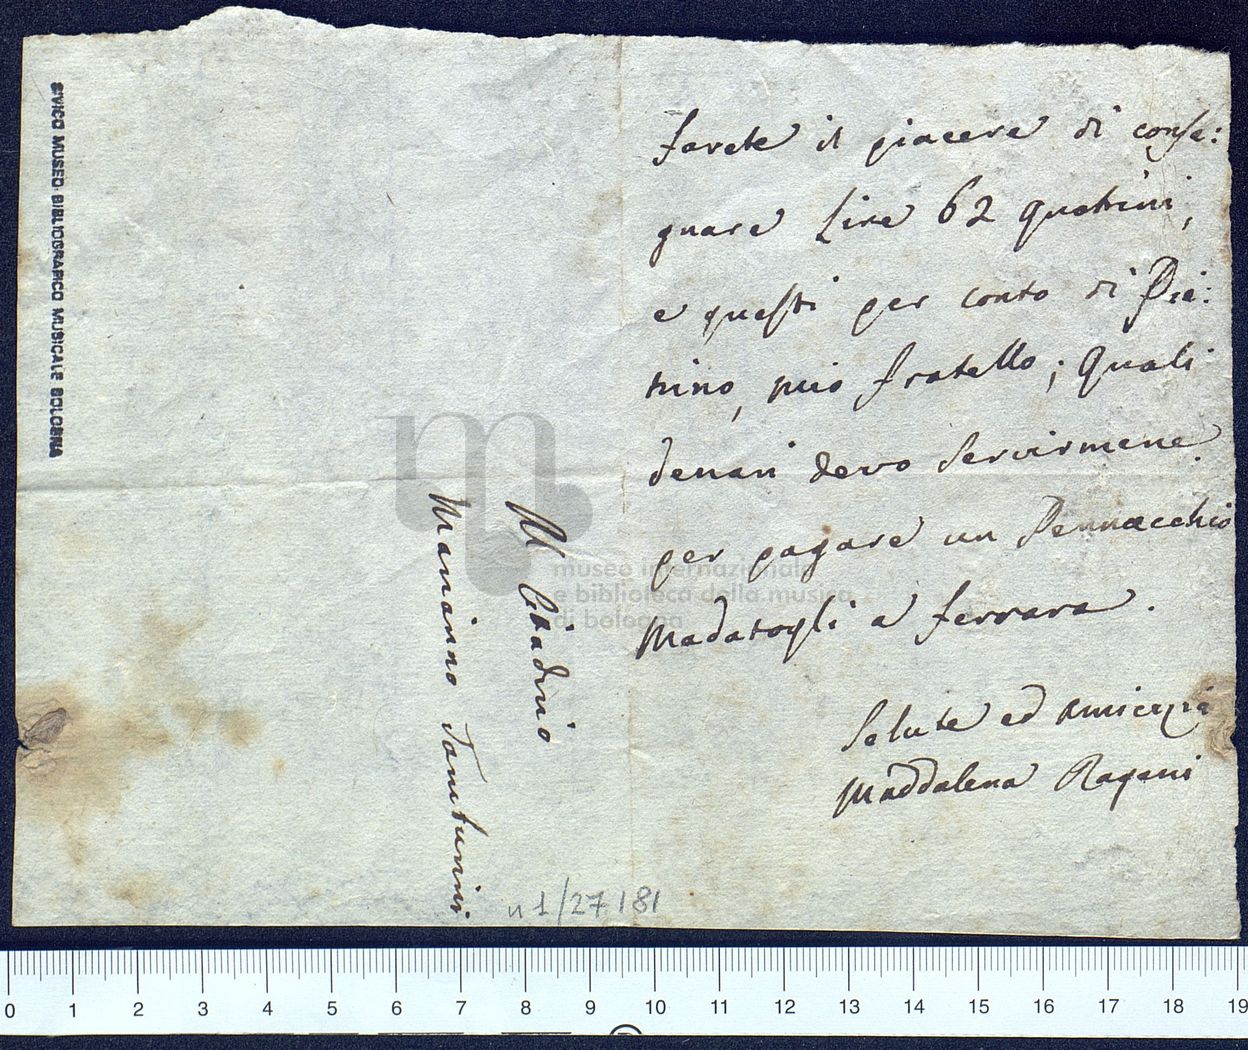 farete il piacere di conse:
gnare Lire 62 quatrini,
e questi per conto di Pie:
trino, mio fratello; quali
denari devo servirmene
per pagare un Pennacchio
madatogli a ferrara.
Salute ed amicizia
Maddalena Ragani
Al Citadino
Marianno Tomburini
n 1/27 181
CIVICO MUSEO BIBLIOGRAFICO MUSICALE BOLOGNA
museo internazionale
e biblioteca della musica
di bologna
0 1 2 3 4 5 6 7 8 9 10 11 12 13 14 15 16 17 18 19